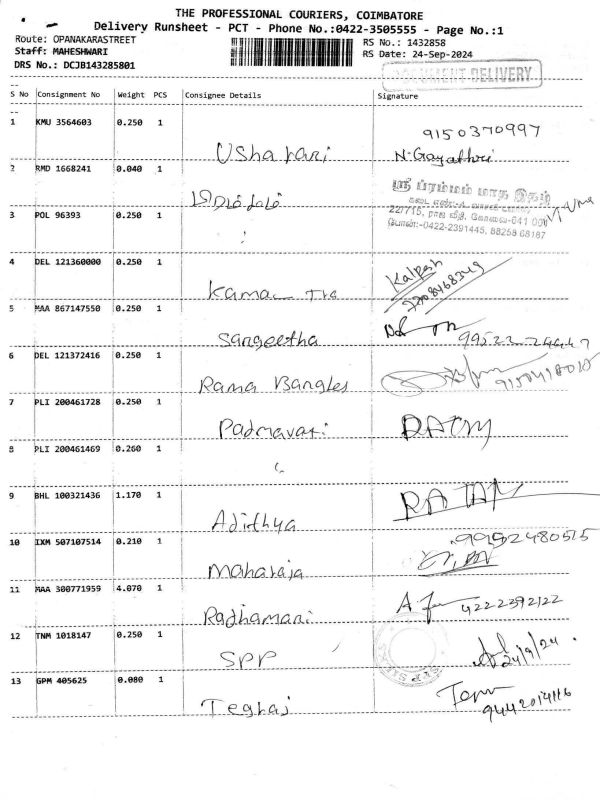 THE PROFESSIONAL COURIERS, COIMBATORE
Delivery Runsheet - PCT - Phone No.:0422-3505555 - Page No.:1
Route: OPANAKARASTREET
RS No.: 1432858
Staff: MAHESHWARI
RS Date: 24-Sep-2024
DRS No.: DCJB143285801
DOCUMENT DELIVERY
S No Consignment No Weight PCS Consignee Details Signature
1 KMU 3564603 0.250 1 Usha rani 9150370997
N-Gayathri
2 RMD 1668241 0.040 1
ஸ்ரீ பிரம்மம் மாத இதழ்
22/715, ராஜ வீதி, கோவை-641 001
போன்:-0422-2391445, 88258 68187
3 POL 96393 0.250 1 "
4 DEL 121360000 0.250 1 Kamal Tra Kalpesh
7708468349
5 MAA 867147550 0.250 1 Sangeetha
6 DEL 121372416 0.250 1 Rama Bangles
7 PLI 200461728 0.250 1 Padmavati
8 PLI 200461469 0.260 1 "
9 BHL 100321436 1.170 1 Adithya RATAN
10 IXM 507107514 0.210 1 Maharaja 99952480515
11 MAA 300771959 4.070 1 Radhamani 4222392122
12 TNM 1018147 0.250 1 SPP 24/9/24.
13 GPM 405625 0.080 1 Tegraj